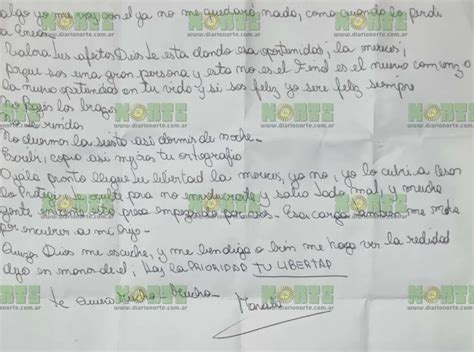 algo yo me voy con el ya no me quedara nada, como cuando lo perdi
a
Valora tus afectos Dios te esta dando esa oportunidad, la mereces,
porque sos una gran persona y esta no es el Fin es el nuevo comienzo
la nueva oportunidad en tu vida y si sos feliz yo sere feliz siempre
No bajes los brazos
No te rindas
No duermas la siesta asi dormis de noche.
Escribi, copia asi mejoras tu ortografia
Ojala pronto llegue tu libertad la mereces, yo no, yo lo cubri a Cesar
lo Proteji, lo oculte para no involucrarlo y salio todo mal, y mucha
gente inocente esta presa empezando por vos. Esa carga tambien me mata
por encubrir a mi hijo.
Quizas Dios me escuche, y me bendiga o bien me haga ver la realidad
algo en manos de el; hoy la PRIORIDAD TU LIBERTAD
te quiero mucho - mucho - Marcela
NORTE
www.diarionorte.com.ar